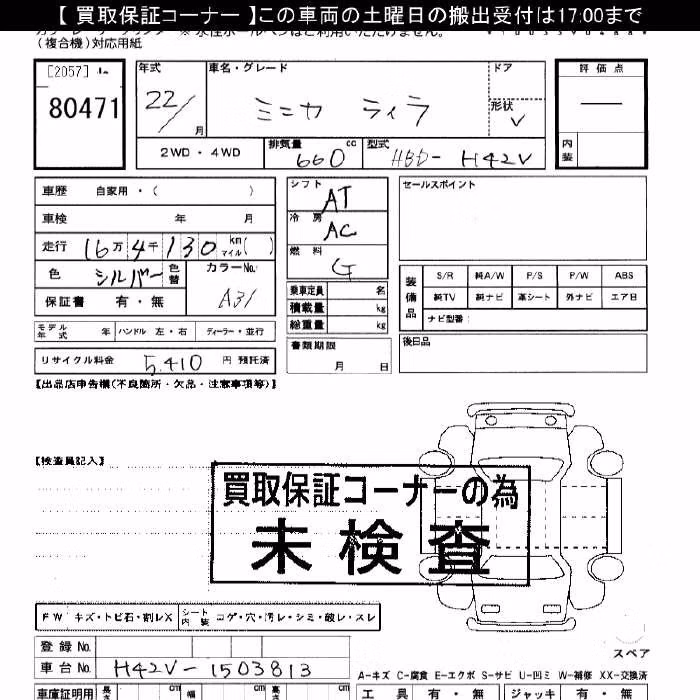 【 買取保証コーナー 】この車両の土曜日の搬出受付は17:00まで
(複合機)対応用紙
[2057]
80471
年式
22/
月
車名・グレード
ミニカ ライラ
ドア
形状
V
評価点
―
内装
2WD・4WD
排気量
660
cc
型式
HBD-H42V
車歴 自家用・( )
車検 年 月
走行 16万4千130 km マイル( )
色 シルバー 色替
カラーNo.
A31
保証書 有・無
シフト
AT
冷房
AC
燃料
G
乗車定員 名
積載量 kg
総重量 kg
セールスポイント
装備品
S/R 純A/W P/S P/W ABS
純TV 純ナビ 革シート 外ナビ エアB
ナビ型番:
モデル年式 年 ハンドル 左・右 ディーラー・並行
リサイクル料金 5,410 円 預託済
書類期限
月 日
後日品
【出品店申告欄(不良箇所・欠品・注意事項等)】
【検査員記入】
買取保証コーナーの為
未検査
FW キズ・トビ石・割レX
シート内装 コゲ・穴・汚レ・シミ・破レ・スレ
登録No.
車台No. H42V-1503813
スペア
A-キズ C-腐食 E-エクボ S-サビ U-凹ミ W-補修 XX-交換済
車庫証明用 長さ cm 幅 cm 高さ cm
工具 有・無 ジャッキ 有・無